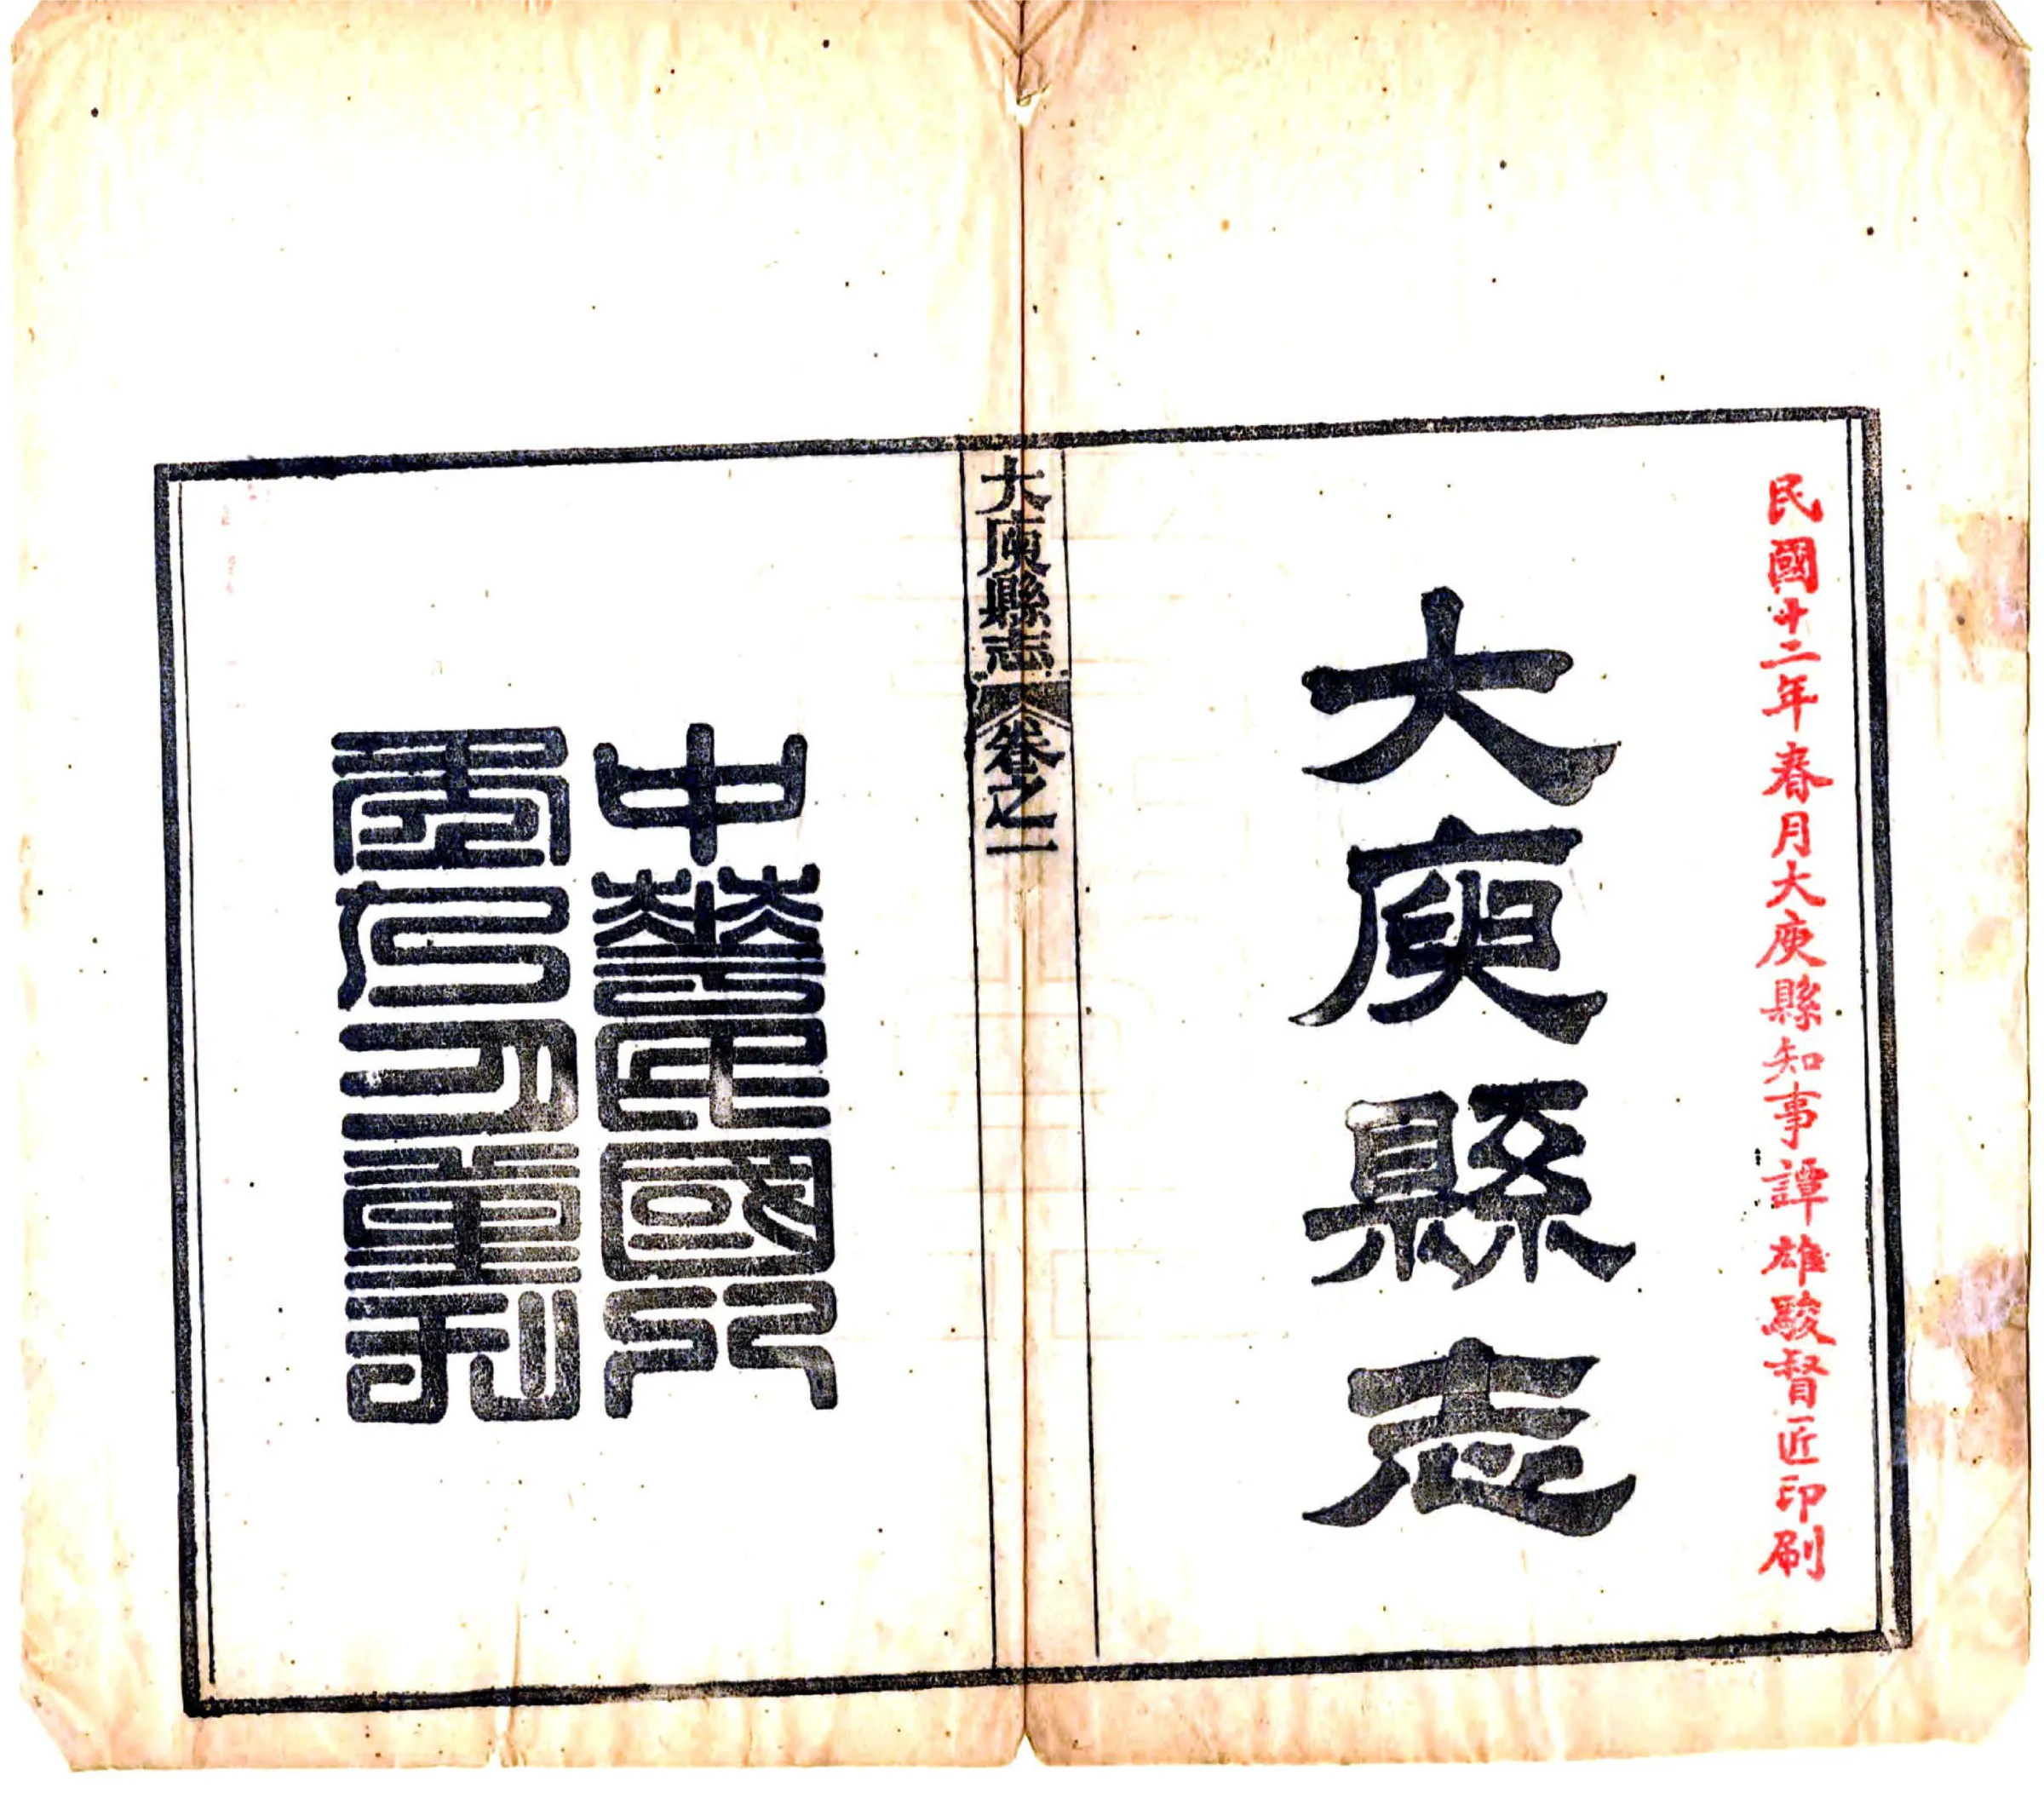 民國十二年春月大庾縣知事譚雄駿督匠印刷
大庾縣志
大庾縣志 卷之一
中華民國八
年重刊